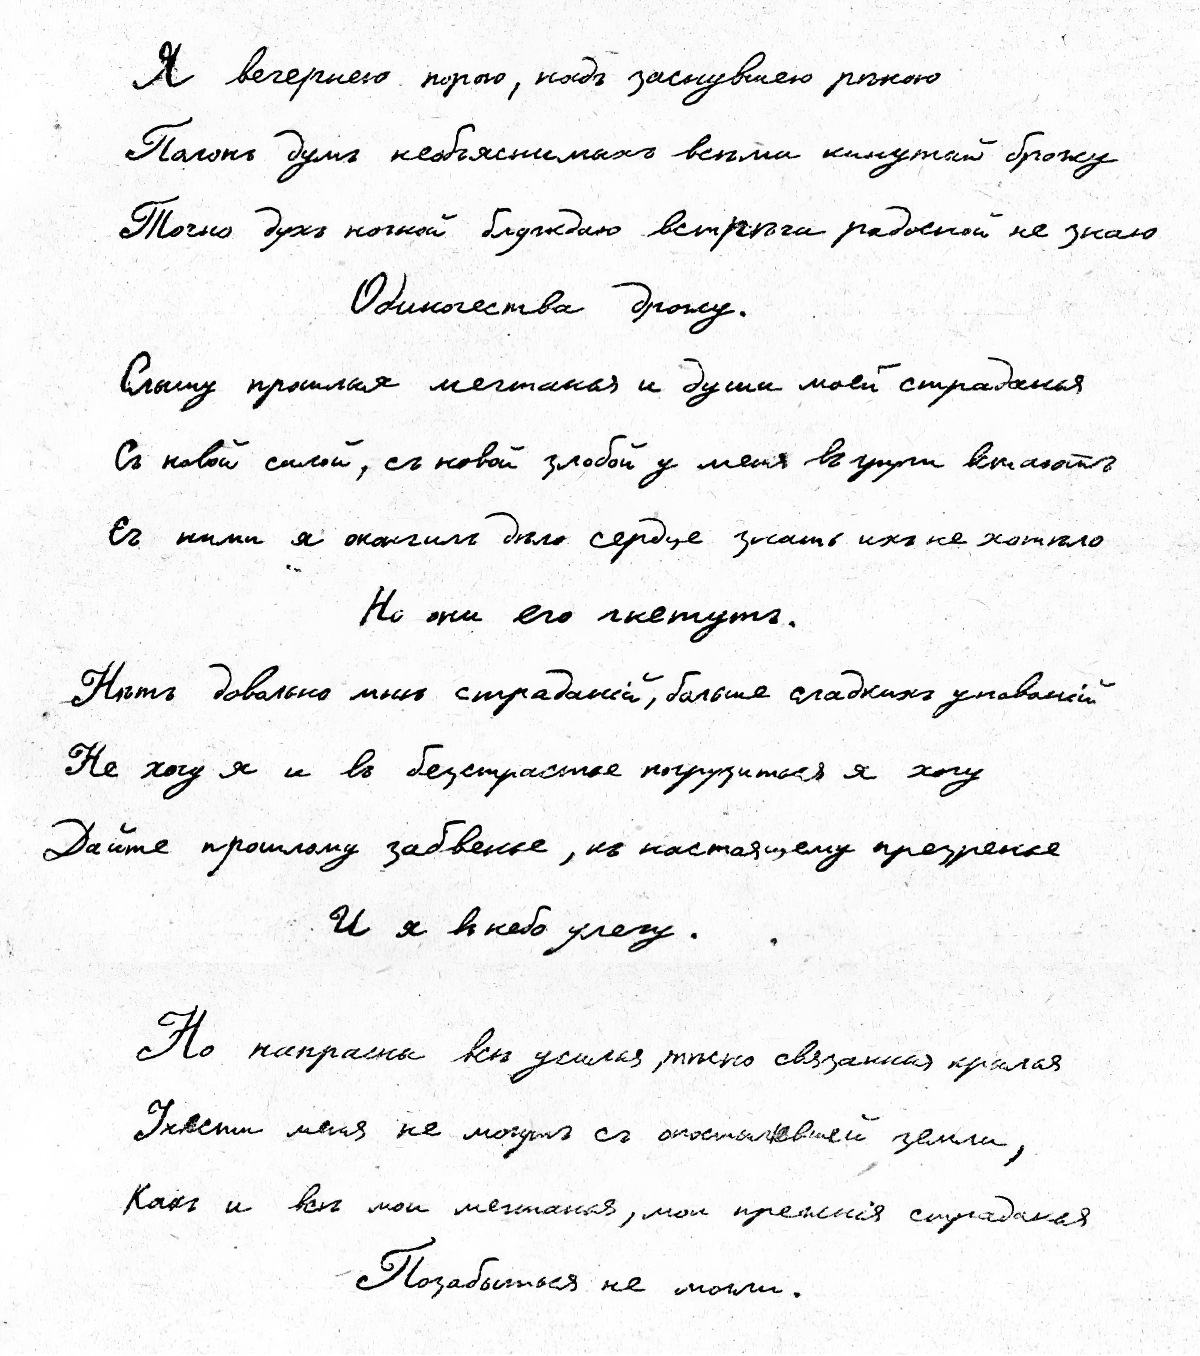 Я вечернею порою, надъ заснувшею рѣкою
Полонъ думъ необъяснимыхъ всѣми кинутый брожу
Точно духъ ночной блуждаю встрѣчи радосной не знаю
Одиночества дрожу.
Слышу прошлыя мечтанья и души моей страданья
Съ новой силой, съ новой злобой у меня въ груди встаютъ
Съ ними я окончилъ дѣло сердце знать ихъ не хотѣло
Но они его гнетутъ.
Нѣтъ довольно мнѣ страданій, больше сладкихъ упованій
Не хочу я и въ безстрастье погрузиться я хочу
Дайте прошлому забвенье, къ настоящему презренье
И я въ небо улечу.
Но напрасны всѣ усилья, тѣсно связанныя крылья
Унести меня не могутъ съ опостылевшей земли,
Какъ и всѣ мои мечтанья, мои прежнія страданья
Позабыться не могли.